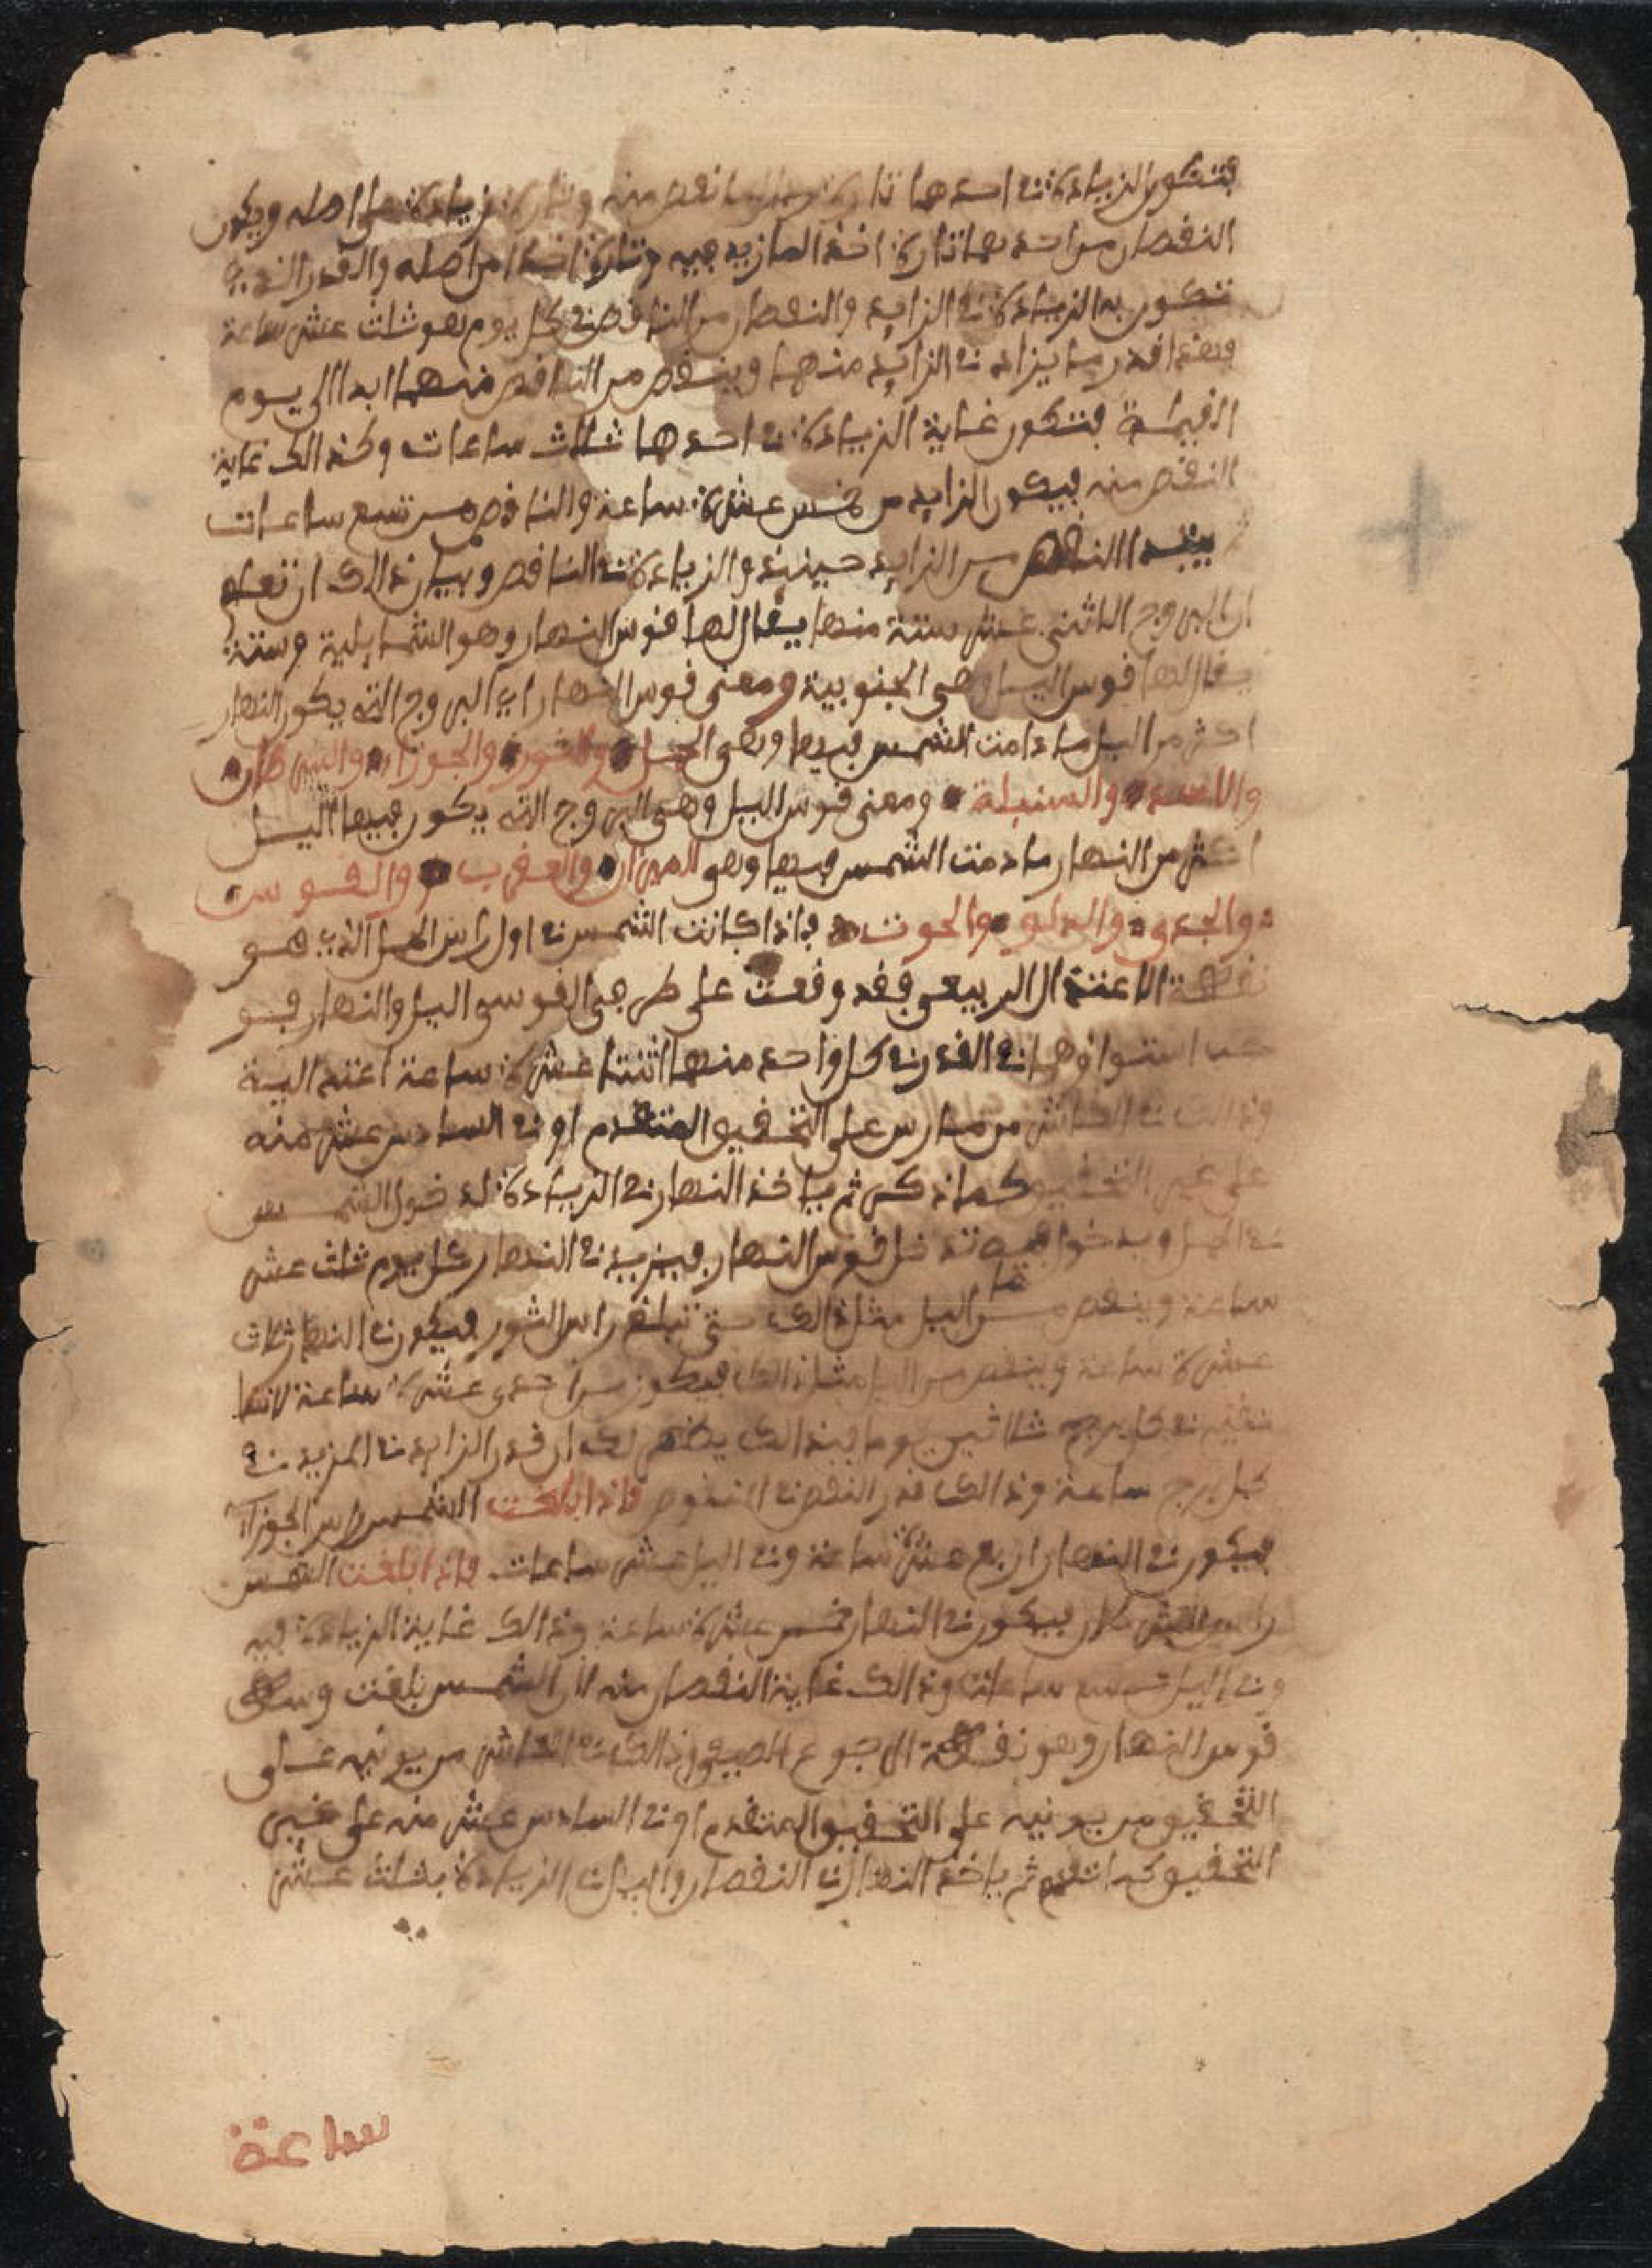 فتكون الزيادة في احدهما تارة نقص منه وتارة زيادة على اصله ويكون
النقصان من احدهما تارة اخذ الما زيد فيه وتارة اخذا من اصله والقدر الذي
تكون به الزيادة في الزايد والنقصان من الناقص في كل يوم هو ثلث عشر ساعة
وهذا قدر ما يزاد في الزايد منهما وينقص من الناقص منهما ابدا الى يوم
القيمة فتكون غاية الزيادة في احدهما ثلاث ساعات وكذالك غاية
النقص منه فيكون الزايد من خمس عشرة ساعة والناقص من تسع ساعات
يبتدا النقص من الزايد حينئذ والزيادة في الناقص وبيان ذالك ان تعلم
ان البروج الاثنى عشر ستة منها يقال لها قوس النهار وهو الشمايلية وستة
يقال لها قوس اليل وهي الجنوبية ومعنى قوس النهار اي البروج التي يكون النهار
اكثر من اليل ما دامت الشمس فيها وهي الحمل والثور والجوزا والسرطان
والاسد والسنبلة ومعنى قوس اليل وهي البروج التي يكون فيها اليل
اكثر من النهار ما دمت الشمس فيها وهو الميزان والعقرب والقوس
والجدي والدلو والحوت فاذا كانت الشمس في اول راس الحمل الذي هو
نقطة الاعتدال الربيعي فقد وقعت على طرفي القوسي اليل والنهار فيو
استوا في القدر في كل واحد منهما اثنتا عشرة ساعة اعتدالية
وذالك في العاشر من مارس على التحقيق المتقدم او في السادس عشر منه
على غير التحقيق كما ذكر ثم ياخذ النهار في الزيادة لدخول الشمس
في الحمل وبدخولها فيه تدخل قوس النهار فيزيد في النهار كل يوم ثلث عشر
ساعة وينقص من اليل مثل ذالك حتى تبلغ راس الثور فيكون في النهار ثلاث
عشرة ساعة وينقص من اليل مثل ذالك فيكون من احدى عشرة ساعة لانها
تقيم في كل برج ثلاثين يوما فبذالك يظهر لك ان قدر الزايد في المزيد في
كل برج ساعة وذالك قدر النقص في المنقوص فاذا بلغت الشمس راس الجوزا
فيكون في النهار اربع عشرة ساعة وفي اليل عشر ساعات فاذا بلغت الشمس
راس السرطان فيكون في النهار خمس عشرة ساعة وذالك غاية الزيادة فيه
وفي اليل تسع ساعات وذالك غاية النقصان منه لان الشمس بلغت وسط
قوس النهار وهو نقطة الرجوع الصيفي وذالك في العاشر من يونيه على
التحقيق من يونيه على التحقيق المتقدم او في السادس عشر منه على غير
التحقيق كما تقدم ثم ياخذ النهار في النقصان واليل في الزيادة بثلث عشر
ساعة